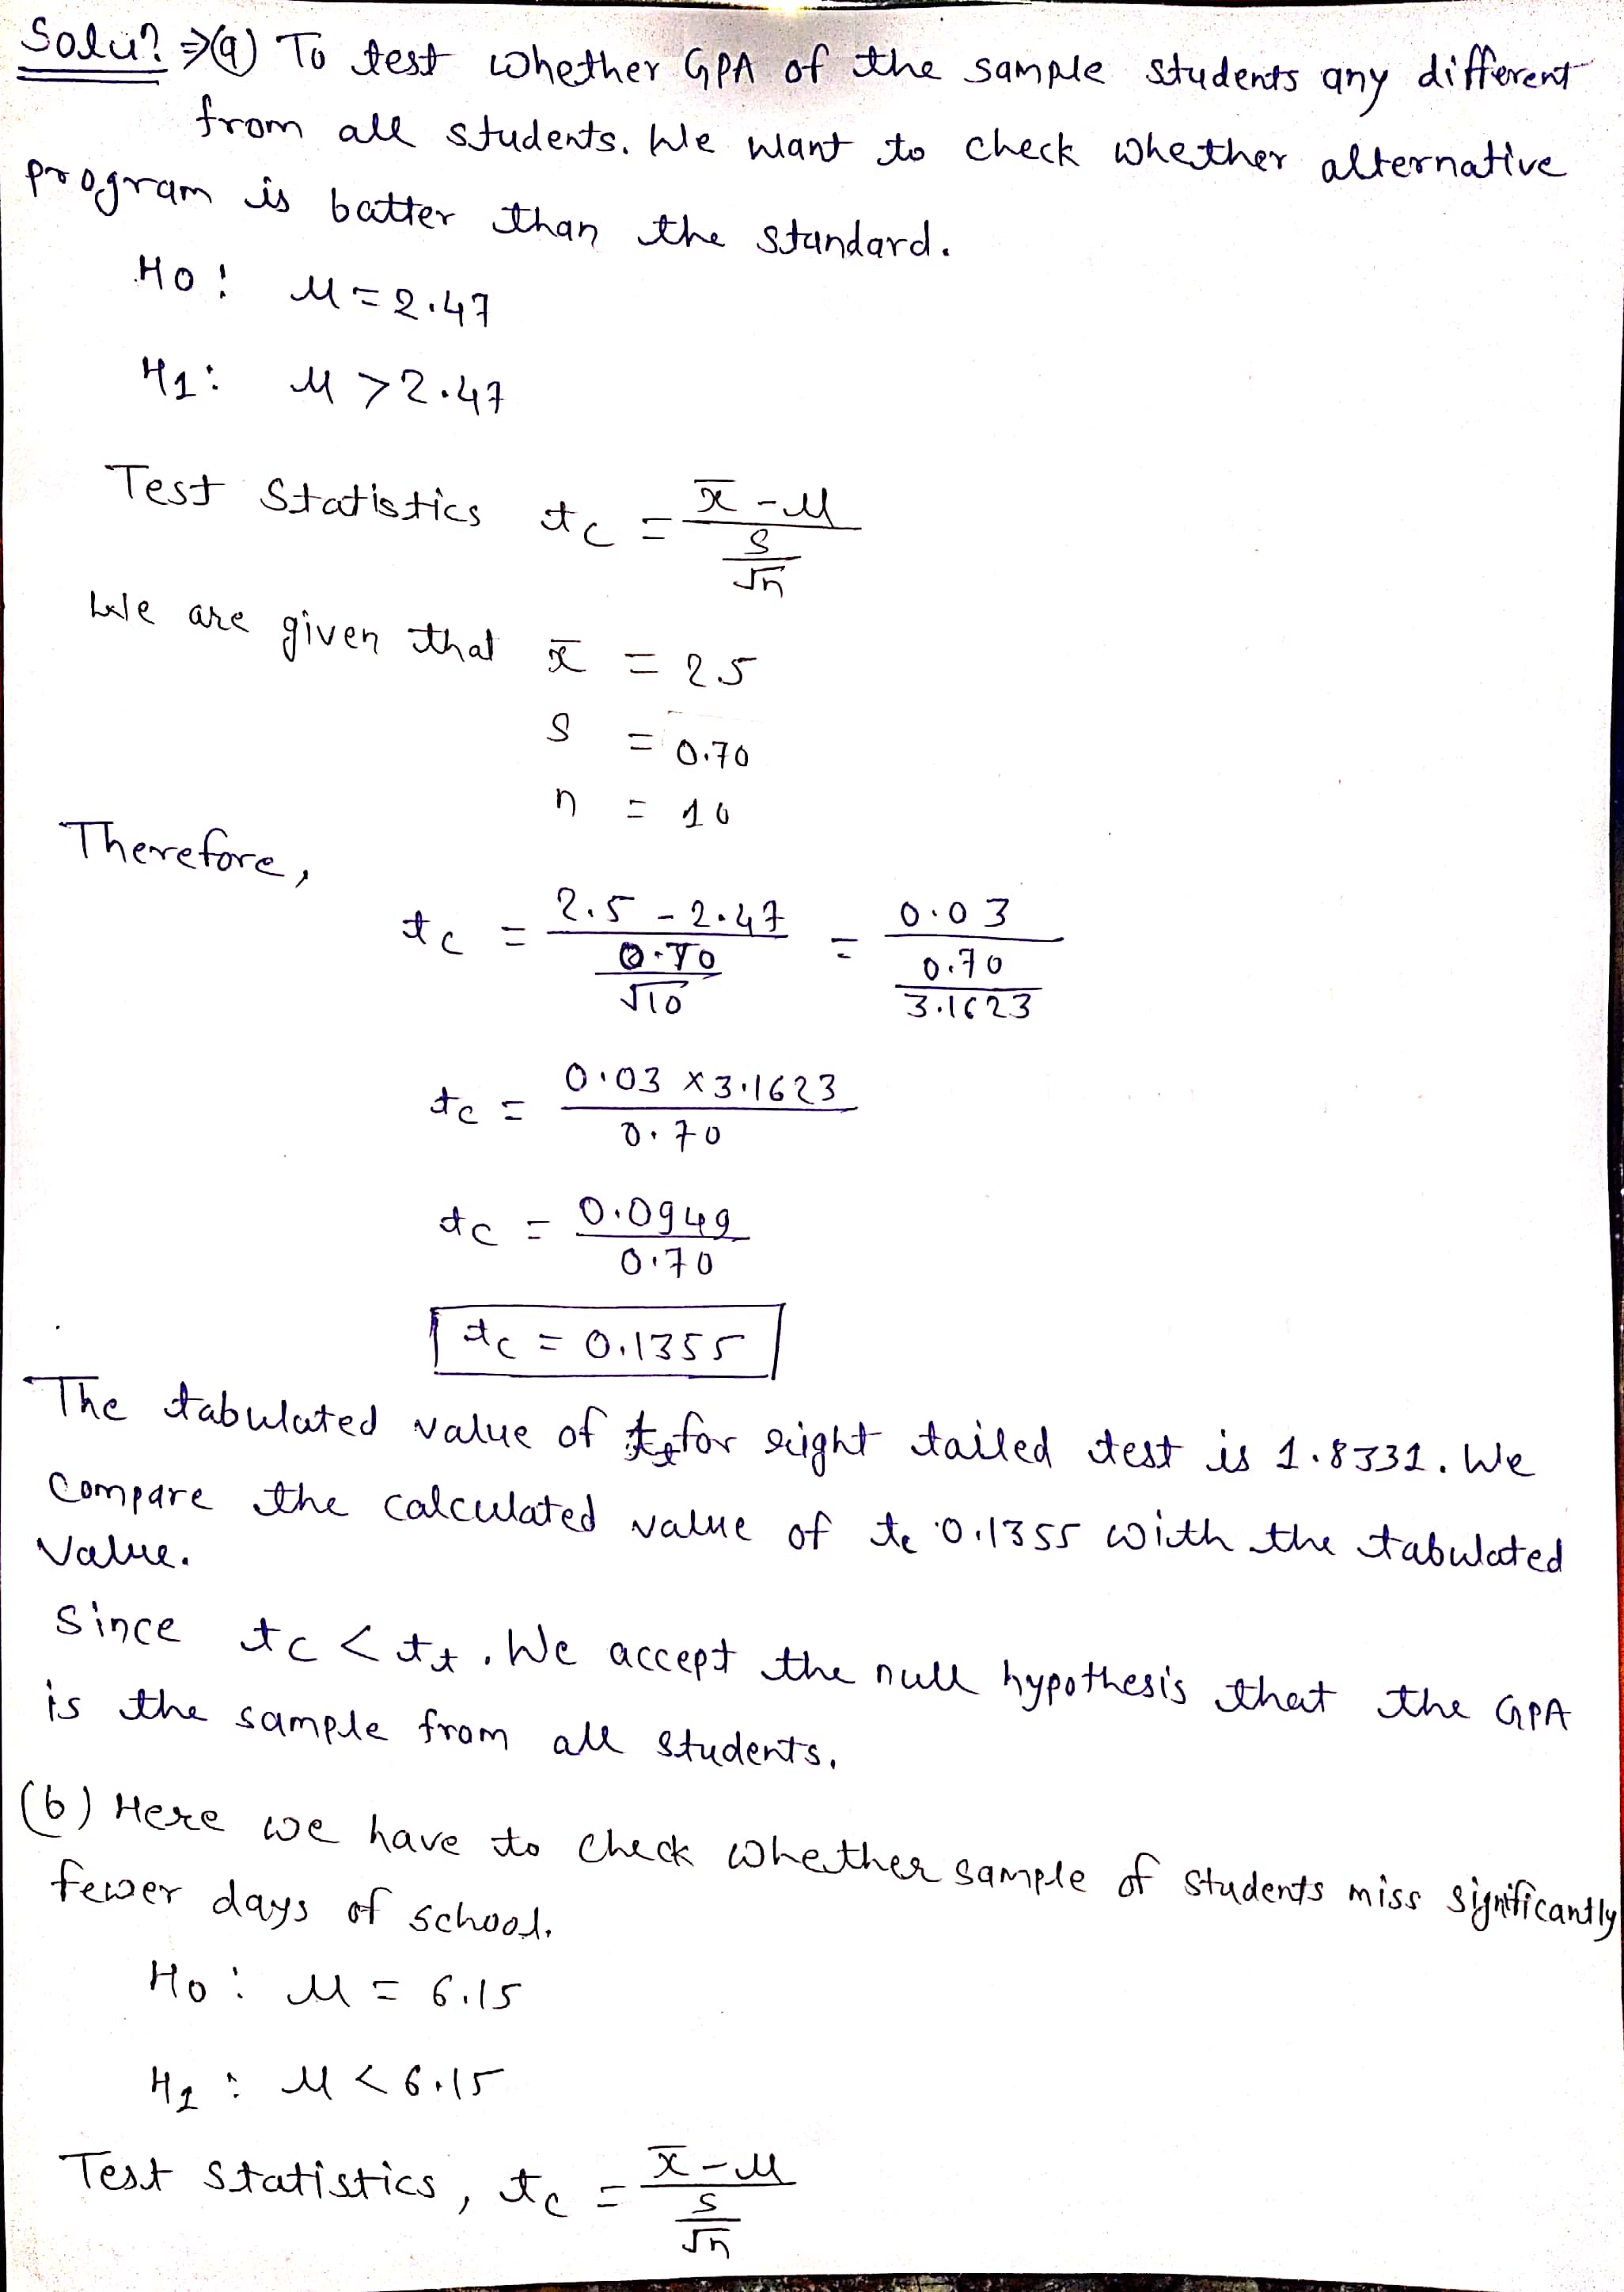 Solu? ⇒(a) To test whether GPA of the sample students any different
from all students. We want to check whether alternative
program is batter than the standard.
H0: μ = 2.47
H1: μ > 2.47
Test Statistics tc = (x̄ - μ) / (s/√n)
We are given that x̄ = 25
s = 0.70
n = 10
Therefore,
tc = (2.5 - 2.47) / (0.70/√10) = 0.03 / (0.70/3.1623)
tc = (0.03 × 3.1623) / 0.70
tc = 0.0949 / 0.70
tc = 0.1355
The tabulated value of tt for right tailed test is 1.8331. We
compare the calculated value of tc 0.1355 with the tabulated
value.
Since tc < tt. We accept the null hypothesis that the GPA
is the sample from all students.
(b) Here we have to check whether sample of students miss significantly
fewer days of school.
H0: μ = 6.15
H1: μ < 6.15
Test statistics, tc = (x̄ - μ) / (s/√n)